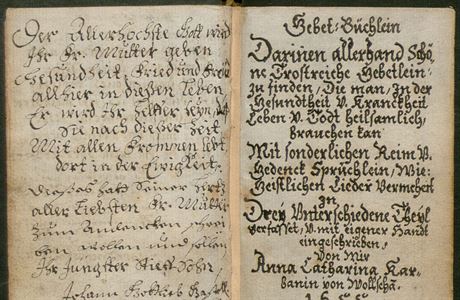 Der Allerhochste Gott wird
Ihr Fr. Mütter geben
Gesündheit, Fried und
all hier in dießen Leben
Er wird Ihr helffer seyn, daß
Sie nach dießer Zeit
Mit allen Frommen lebt
dort in der Ewigkeit.
Dieses hatt Seiner hertz
aller Liebsten Fr. Mütter
Zum Andencken
ben wollen und sollen
Ihr Jüngster Stieff-Sohn,
Johann Gottlieb
Gebet-Büchlein
Darinen allerhand Schö,
ne Trostreiche Gebetlein
zu finden, Die man, In der
Gesundtheit v. Kranckheit
Leben v. Todt heilsamlich,
brauchen kan
Mit sonderlichen Reim v.
Gedenck Sprüchlein, Wie
Geistlichen Lieder vermehrt
In
Drey Unterschiedene Theyl
verfasset, v. mit eigener Handt
eingeschrieben,
Von Mir
Anna Catharina Kar-
banin von Wollscha.